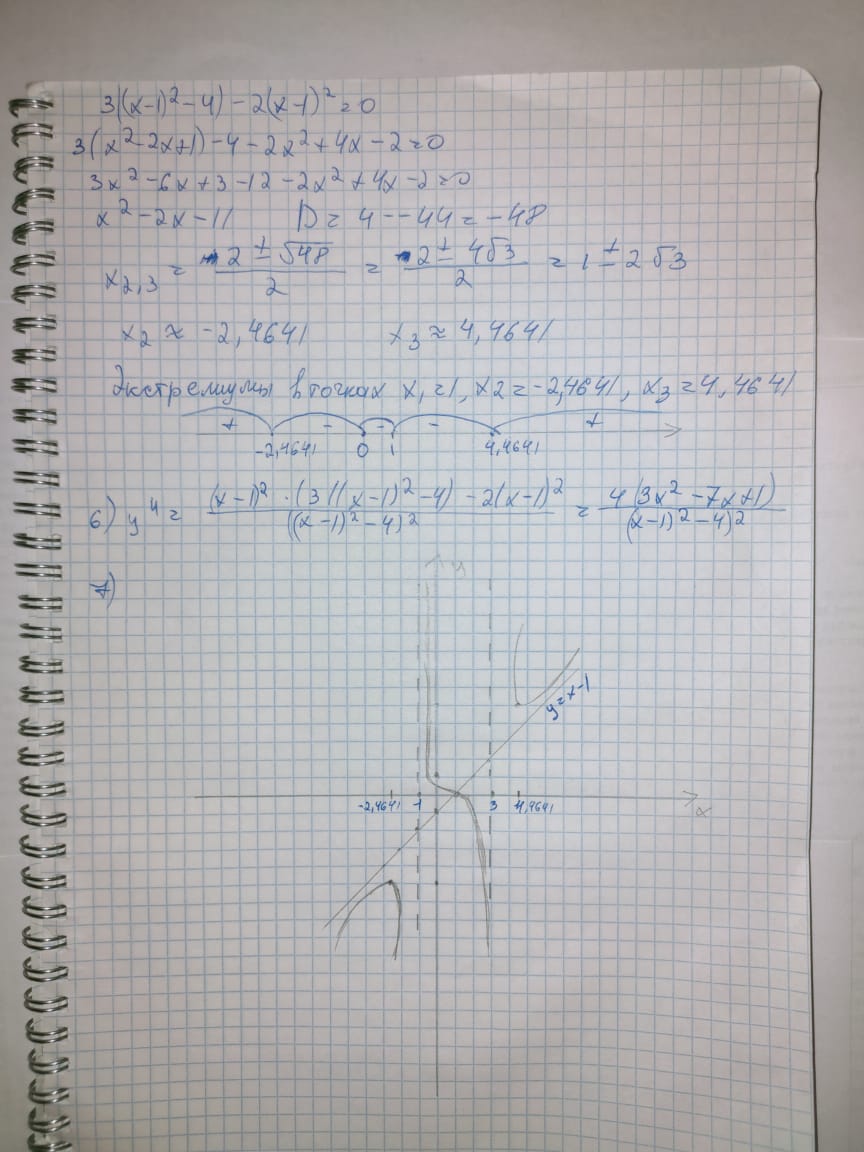 3((x-1)²-4)-2(x-1)²=0
3(x²-2x+1)-4-2x²+4x-2=0
3x²-6x+3-12-2x²+4x-2=0
x²-2x-11 D=4--44=-48
x₂,₃ = 2±√48/2 = 2±4√3/2 = 1±2√3
x₂≈-2,4641 x₃≈4,4641
Экстремумы в точках x₁=1, x2=-2,4641, x₃=4,4641
+ - - - +
-2,4641 0 1 4,4641
6) y" = (x-1)²·(3((x-1)²-4)-2(x-1)²/((x-1)²-4)² = 4(3x²-7x+1)/(x-1)²-4)²
7)
y
y=x-1
-2,4641 -1 3 4,4641 x